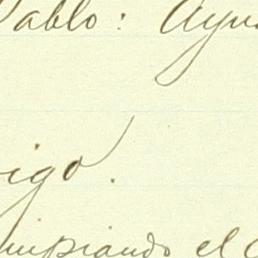 Pablo: Ayu
igo.
mpiando el